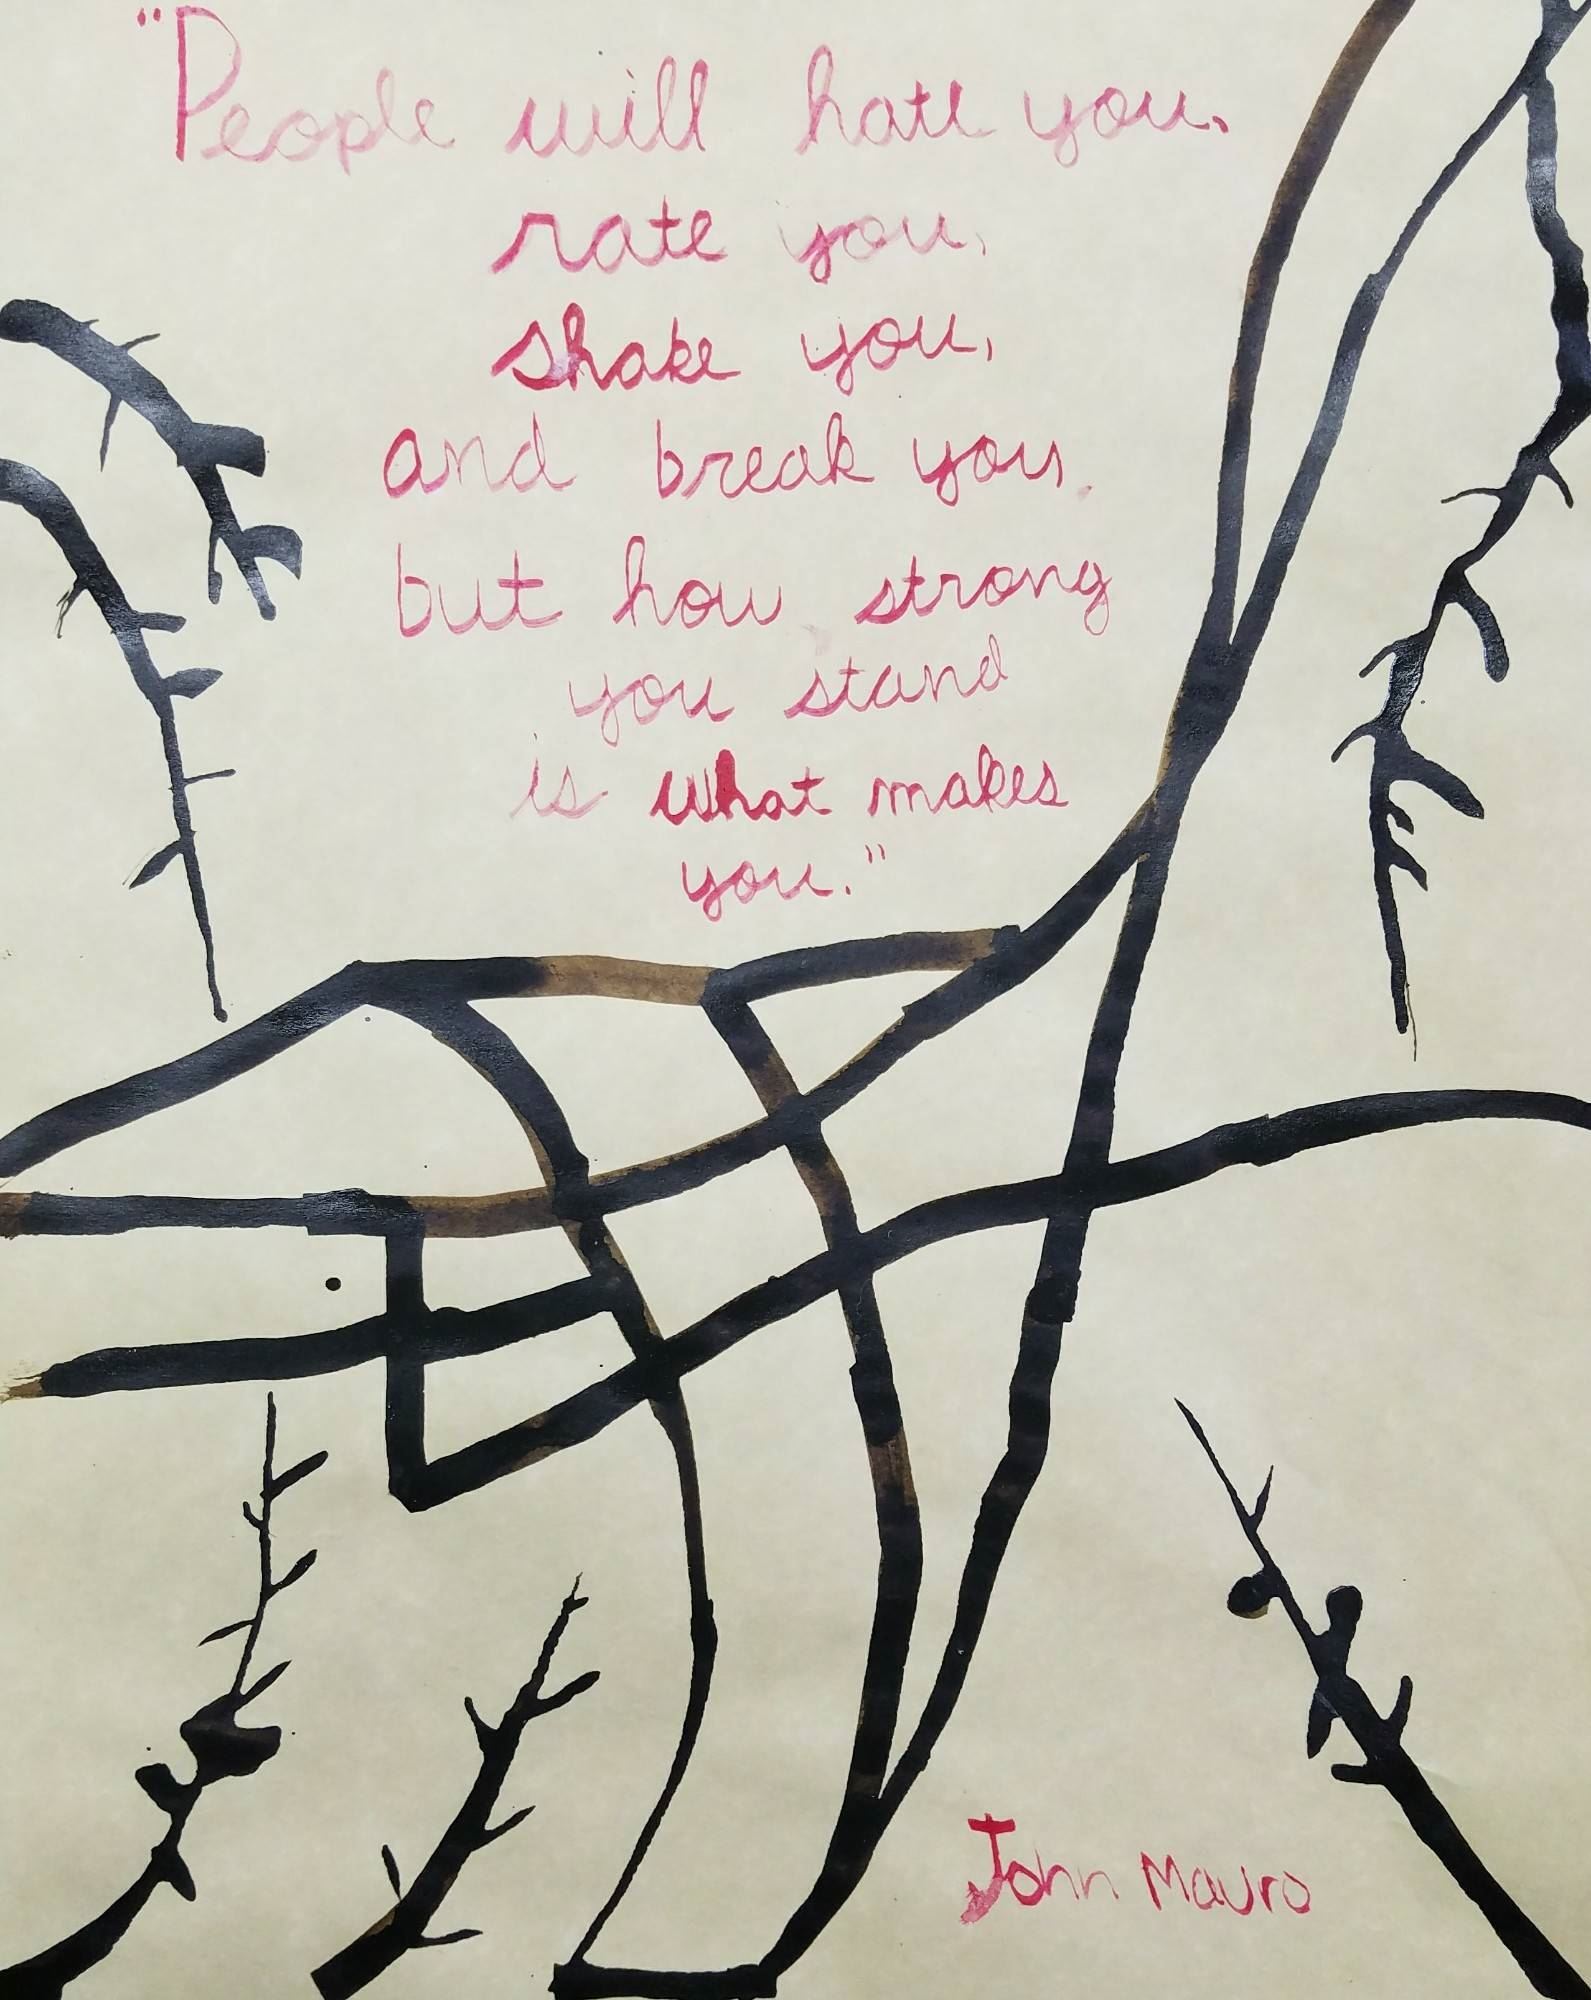 "People will hate you,
rate you,
shake you,
and break you,
but how strong
you stand
is what makes
you."
John Mauro